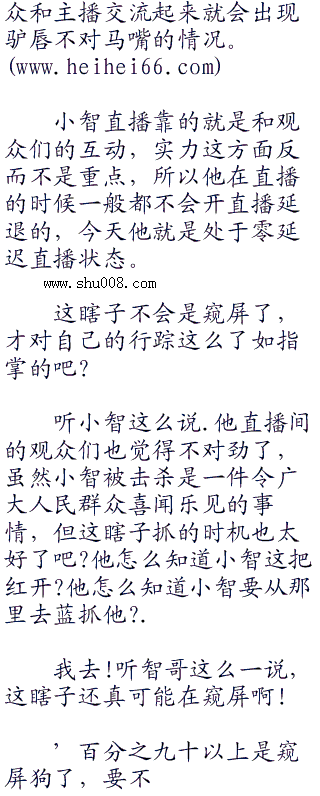 众和主播交流起来就会出现
驴唇不对马嘴的情况。
(www.heihei66.com)
小智直播靠的就是和观
众们的互动，实力这方面反
而不是重点，所以他在直播
的时候一般都不会开直播延
退的，今天他就是处于零延
迟直播状态。
www.shu008.com
这瞎子不会是窥屏了，
才对自己的行踪这么了如指
掌的吧?
听小智这么说.他直播间
的观众们也觉得不对劲了，
虽然小智被击杀是一件令广
大人民群众喜闻乐见的事
情，但这瞎子抓的时机也太
好了吧?他怎么知道小智这把
红开?他怎么知道小智要从那
里去蓝抓他?.
我去!听智哥这么一说，
这瞎子还真可能在窥屏啊!
’百分之九十以上是窥
屏狗了，要不